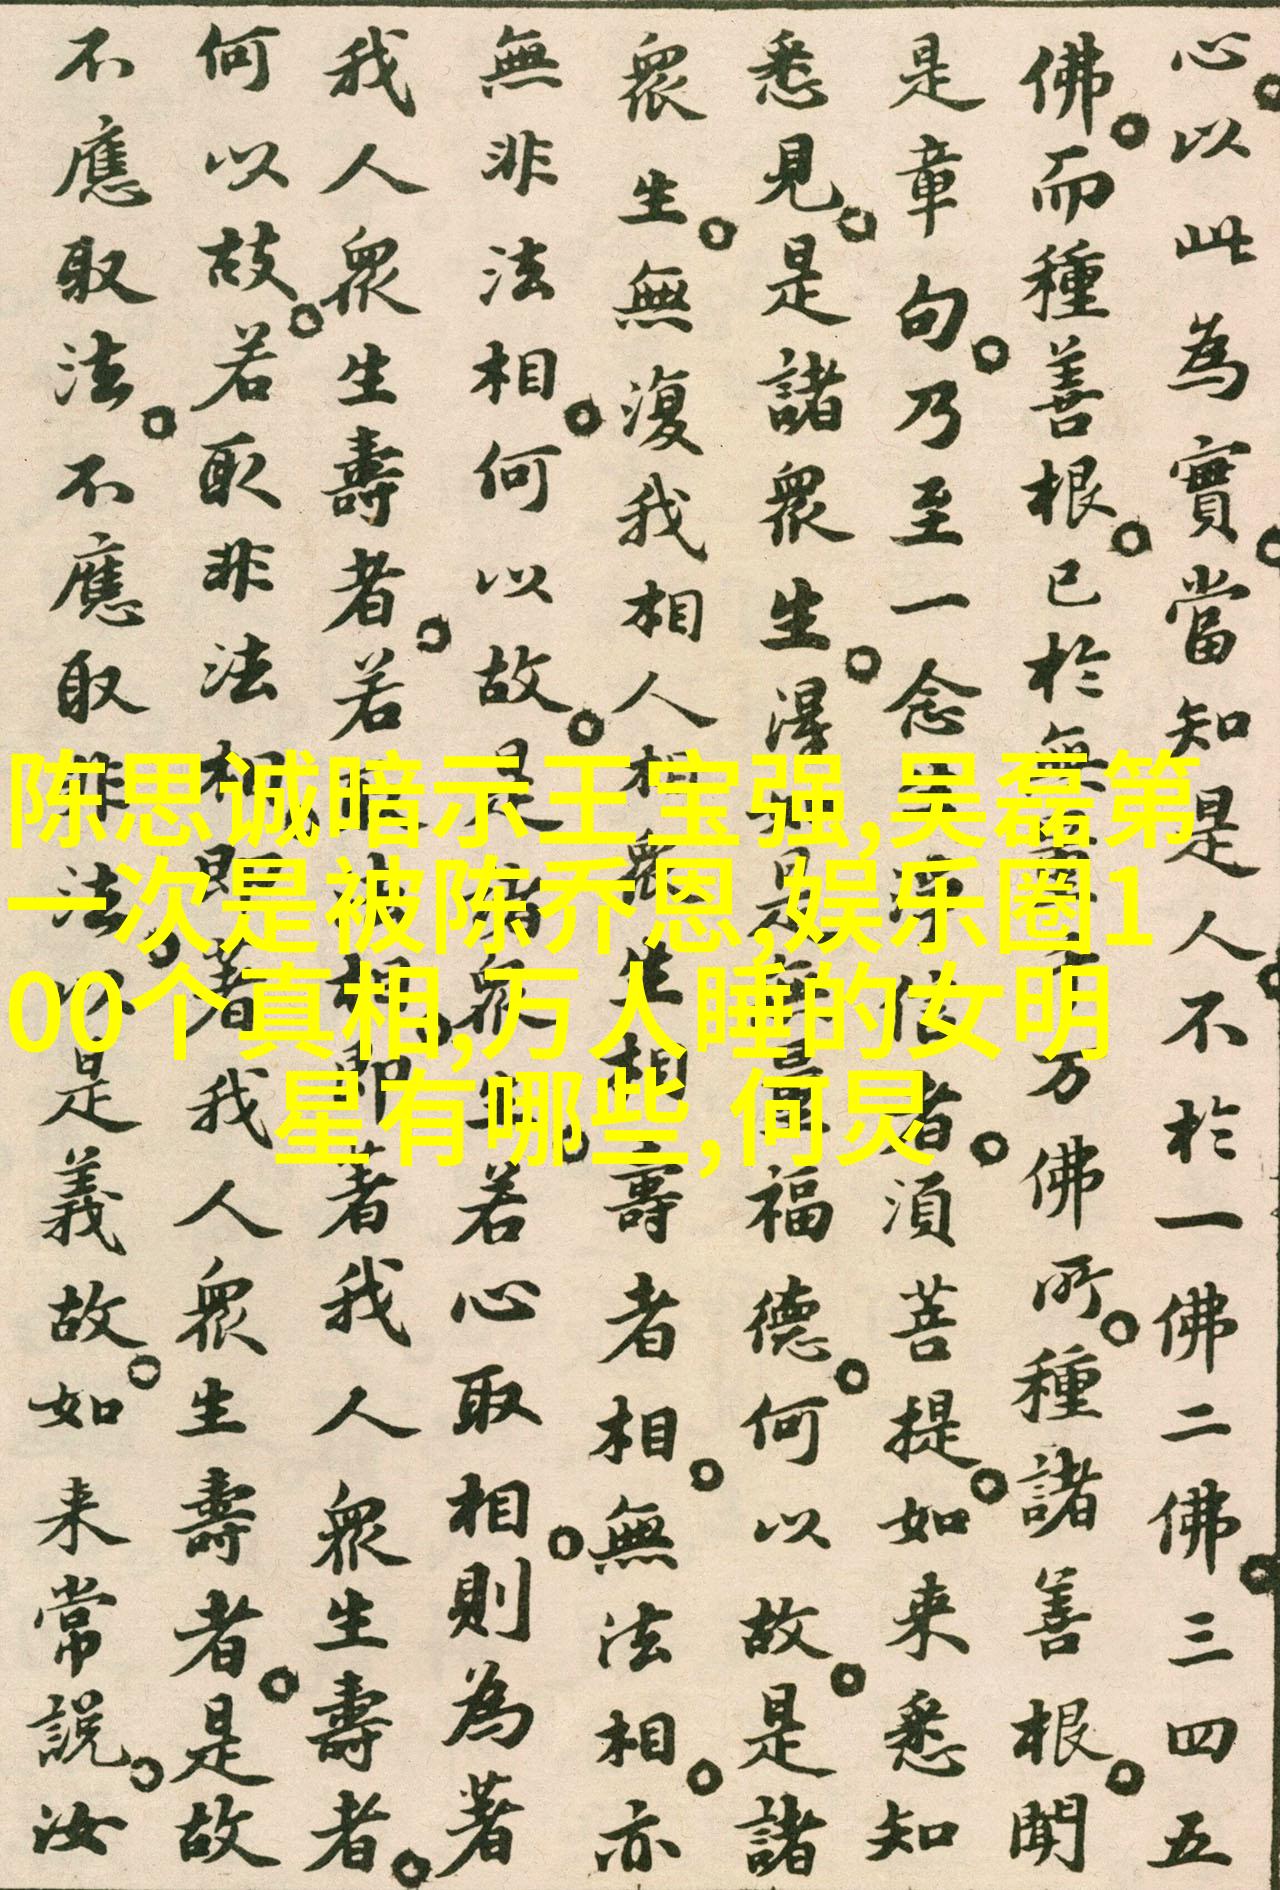 心。以此為實。當知是人。不於一佛二佛。三四五
佛。而種善根。已於無量千万佛所。種諸善根。聞
是章句。乃至一念生淨信者。須菩提。如来悉知
悉見。是諸眾生。淂如是無量福德。何以故。是諸
眾生。無復我相人相眾生相壽者相。無法相。亦
無非法相。何以故。是諸眾生。若心取相。則為著
我人眾生壽者。若取法相。即著我人眾生壽者。
何以故。若取非法相。即著我人眾生壽者。是故
不應取法。不應取非法。以是義故。如来常說。汝
陈思诚暗示王宝强,吴磊第
一次是被陈乔恩,娱乐圈1
00个真相,万人睡的女明
星有哪些,何炅